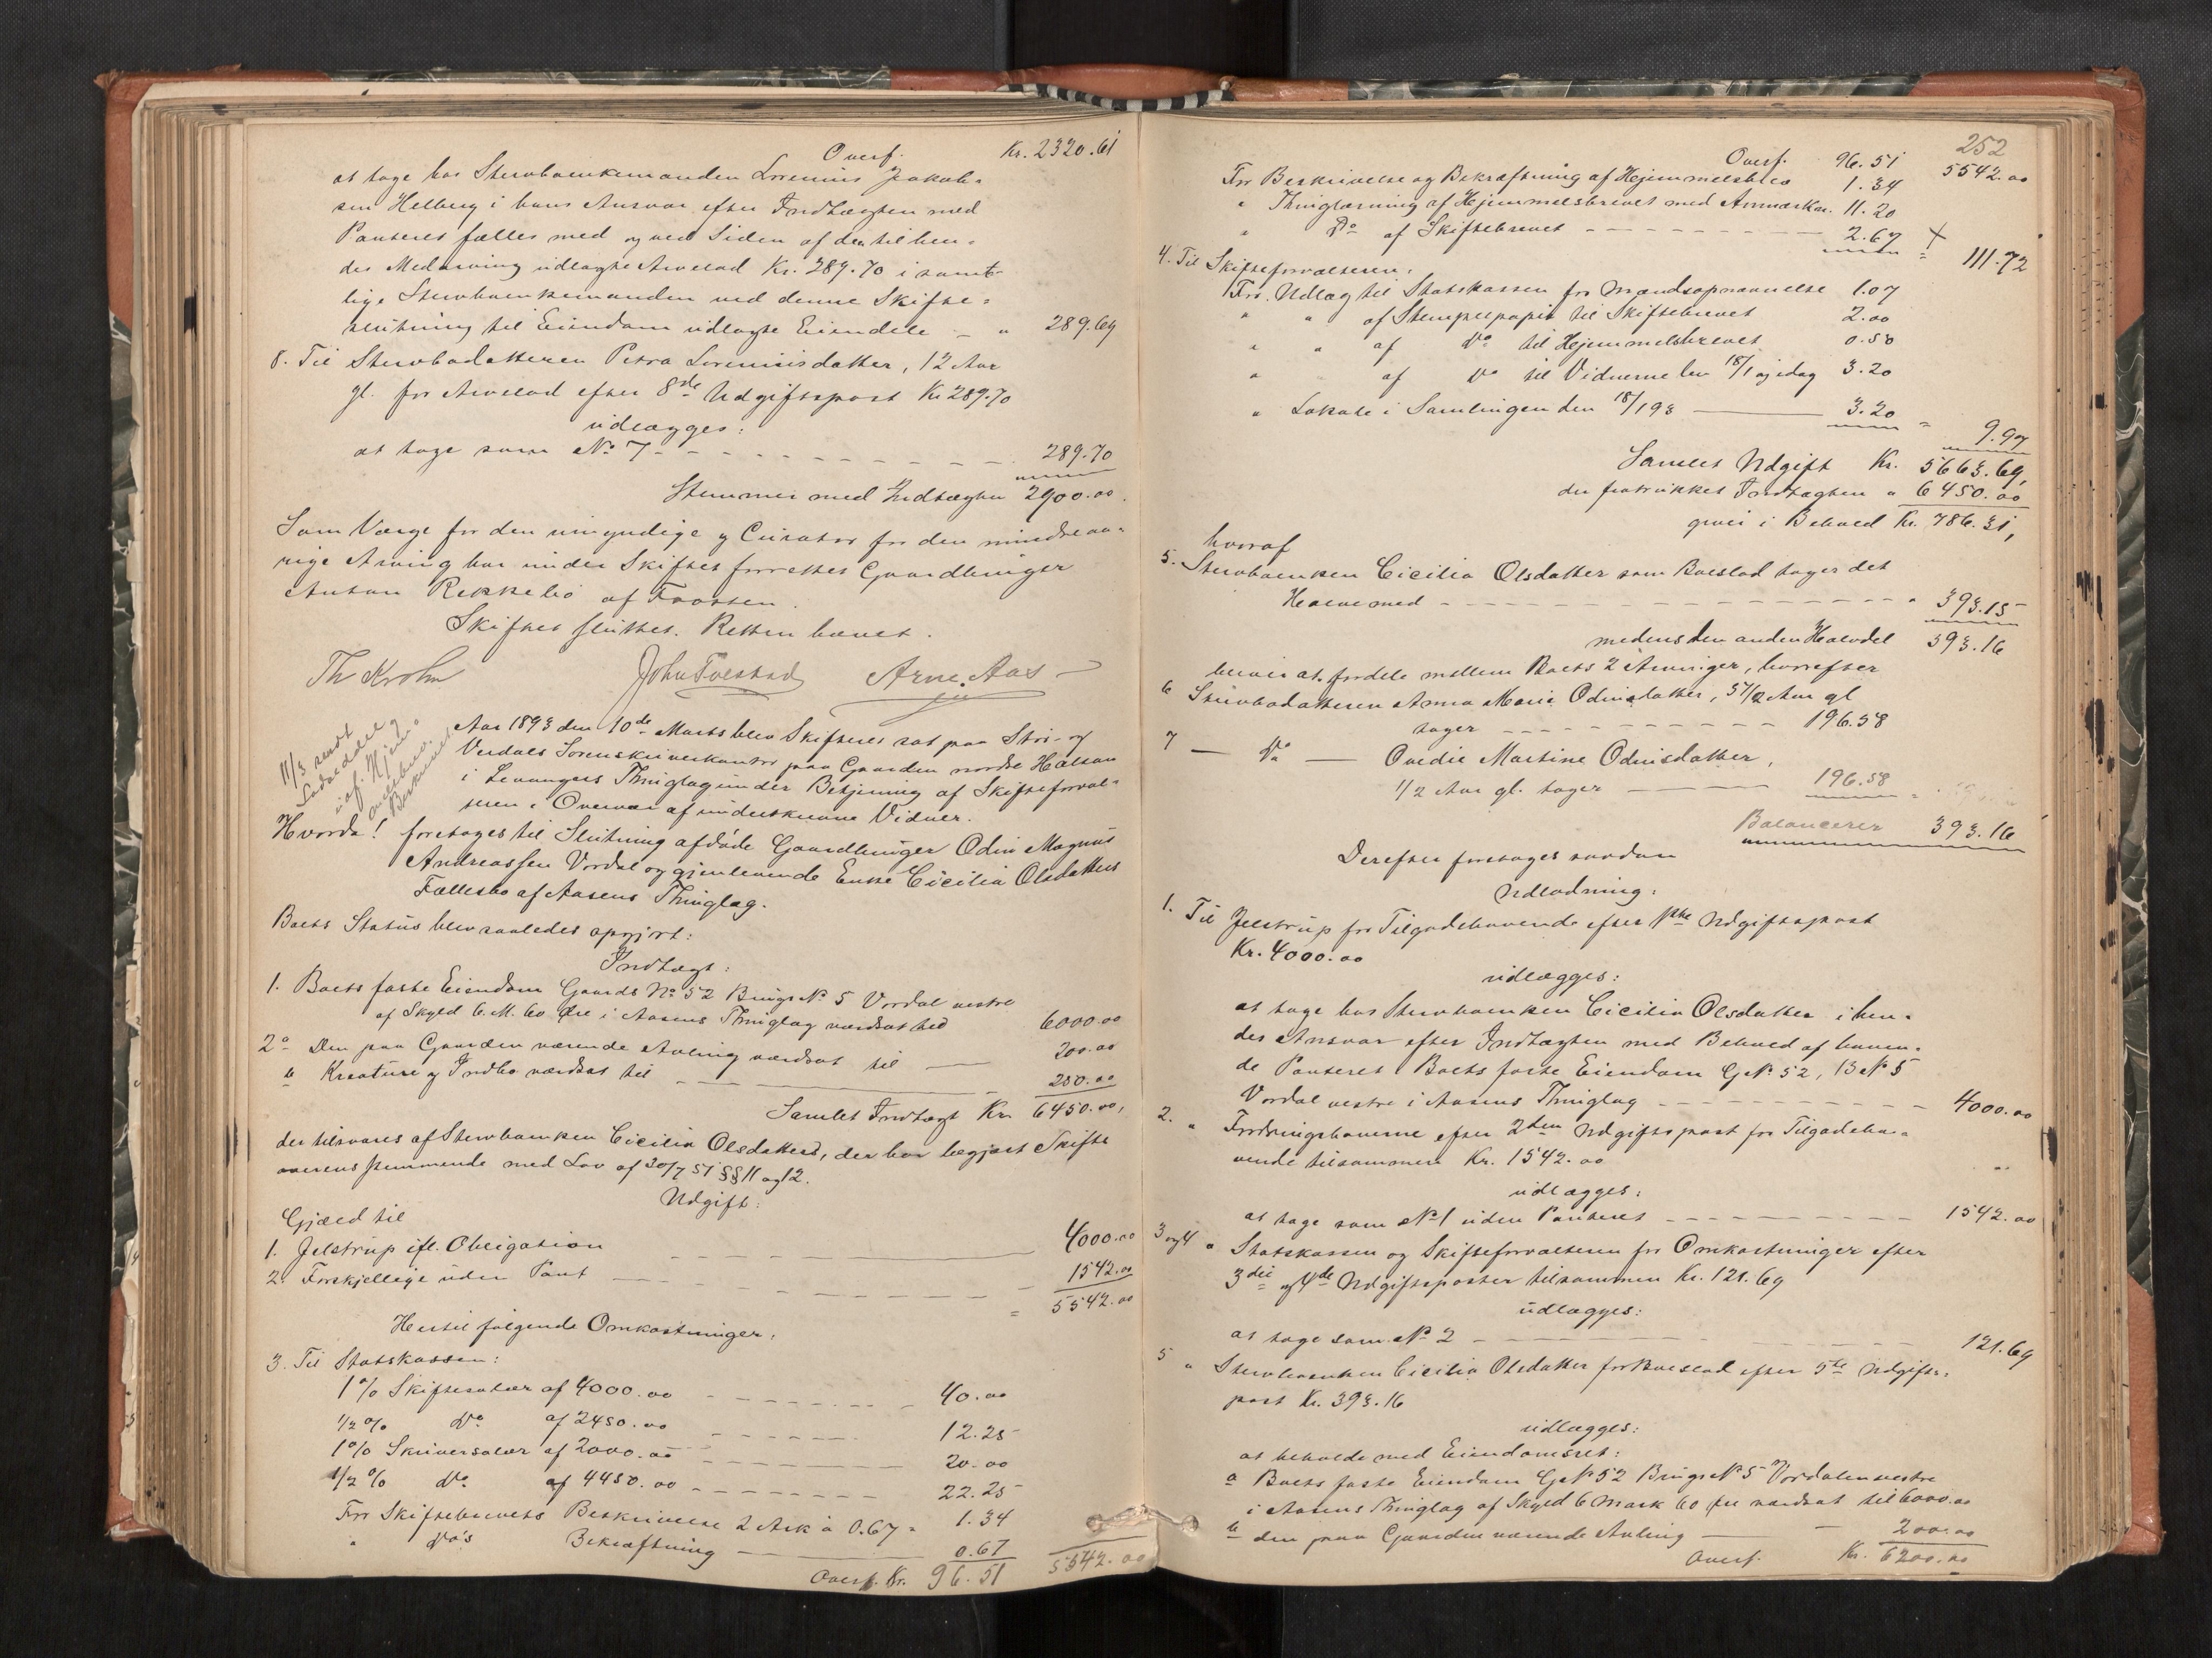 Overf. Kr. 2320.61
at tage hos Stervboenkemanden Lorenius Jakob-
sen Helberg i hans Ansvar efter Indtægten med
Panteret fælles med og ved Siden af den til hen-
des Medarving udlagte Arvelod Kr. 289.70 i samt-
lige Stervboenkemanden ved denne Skifte-
slutning til Eiendom udlagte Eiendele - " 289.69
8. Til Stervbodatteren Petra Loreniusdatter, 12 Aar
gl. for Arvelod efter 8de Udgiftspost Kr 289.70
udlægges:
at tage som No 7 - - - 289.70
Stemmer med Indtægten 2900.00.
Som Værge for den umyndige og Curator for den mindreaa-
rige Arving har under Skiftet forrettet Gaardbruger
Anton Rekkebo af Frosten.
Skiftet sluttet. Retten hævet.
Th Krohn John Tvestad Arne Aas
11/3 sendt
Aar 1893 den 10de Marts blev Skifteret sat paa Stør- og
Verdals Sorenskriverkontor paa Gaarden nordre Halsan
i Levangers Thinglag under Betjening af Skifteforval-
teren i Overvær af underskrevne Vidner.
Hvorda! foretoges til Slutning afdøde Gaardbruger Odin Magnus
Andreassen Vordal og gjenlevende Enke Cicilia Olsdatters
Fællesbo af Aasens Thinglag.
Boets Status blev saaledes opgjort:
Indtægt:
1. Boets faste Eiendom Gaards No 52 Brugs No 5 Vordal vestre
af Skyld 6 M. 60 Øre i Aasens Thinglag værdsat til 6000.00
2 a Den paa Gaarden værende Avling værdsat til 200.00
b Kreature og Indbo værdsat til 250.00
Samlet Indtægt Kr. 6450.00,
der tilsvares af Stervboenken Cicilia Olsdatter, der har begjært Skifte
overensstemmende med Lov af 30/7 51 §§ 11 og 12.
Udgift:
Gjæld til
1. Jelstrup ifl. Obligation 4000.00
2. Forskjellige uden Pant 1542.00
= 5542.00
Hertil følgende Omkostninger:
3. Til Statskassen:
1% Skiftesalær af 4000.00 40.00
1/2% Do af 2450.00 12.25
1% Skriversalær af 2000.00 20.00
1/2% Do af 4450.00 22.25
For Skiftebrevets Beskrivelse 2 Ark à 0.67 = 1.34
" Do's Bekræftning 0.67
Overf. Kr. 96.51 5542.00
252
Overf. 96.51 5542.00
For Beskrivelse og Bekræftning af Hjemmelsbrev 1.34
" Thinglæsning af Hjemmelsbrevet med Anmærkn. 11.20
" Do af Skiftebrevet 2.67 = 111.72
4. Til Skifteforvalteren:
For Udlæg til Statskassen for Mandsopnævnelse 1.07
" " af Stempelpapir til Skiftebrevet 2.00
" " af Do til Hjemmelsbrevet 0.50
" " af Do til Vidnerne den 18/1 og idag 3.20
" Lokale i Samlingen den 18/1 93 3.20 = 9.97
Samlet Udgift Kr. 5663.69,
der fratrukket Indtægten " 6450.00
giver i Behold Kr. 786.31,
hvoraf
5. Stervboenken Cicilia Olsdatter som Boeslod tager det
Halve med " 393.15
medens den anden Halvdel 393.16
bliver at fordele mellem Boets 2 Arvinger, hvorefter
6 Stervbodatteren Anna Marie Odinsdatter, 5 1/2 Aar gl
tager 196.58
7 Do Ovedie Martine Odinsdatter,
1/2 Aar gl. tager 196.58
Balancerer 393.16
Derefter foretoges saadan
Udlodning:
1. Til Jelstrup for Tilgodehavende efter 1ste Udgiftspost
Kr. 4000.00
udlægges:
at tage hos Stervboenken Cicilia Olsdatter i hen-
des Ansvar efter Indtægten med Behold af haven-
de Panteret i Boets faste Eiendom G No 52, B No 5
Vordal vestre i Aasens Thinglag 4000.00
2. " Fordringshaverne efter 2den Udgiftspost for Tilgodeha-
vende tilsammen Kr. 1542.00
udlægges:
at tage som No 1 uden Panteret 1542.00
3 og 4 " Statskassen og Skifteforvalteren for Omkostninger efter
3die og 4de Udgiftsposter tilsammen Kr. 121.69
udlægges:
at tage som No 2 121.69
5 " Stervboenken Cicilia Olsdatter for Boeslod efter 5te Udgifts-
post Kr. 393.16
udlægges:
at beholde med Eiendomsret:
a Boets faste Eiendom G No 52 Brugs No 5 Vordalen vestre
i Aasens Thinglag af Skyld 6 Mark 60 Øre værdsat til 6000.00
b den paa Gaarden værende Avling 200.00
Overf. Kr. 6200.00